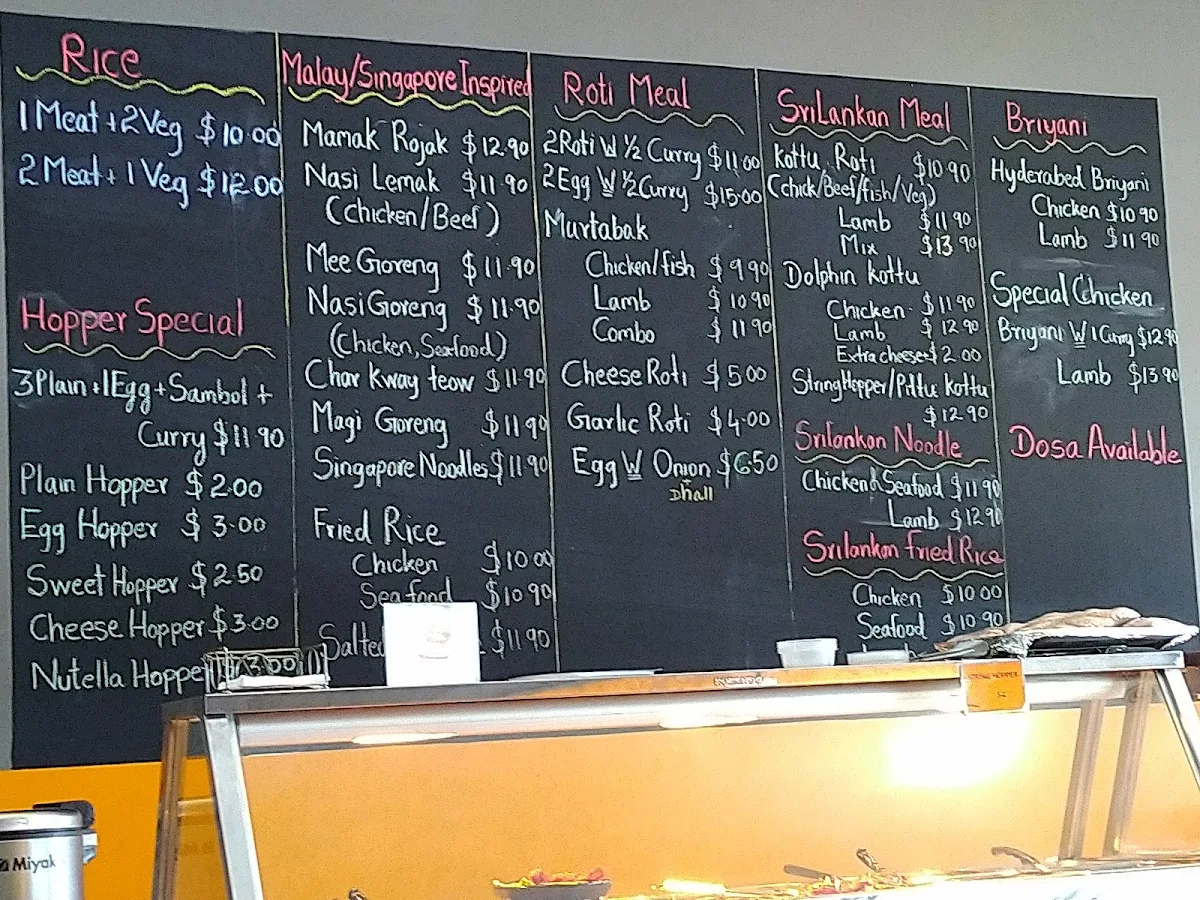 Rice
1 Meat + 2 Veg $10.00
2 Meat + 1 Veg $12.00
Hopper Special
3 Plain + 1 Egg + Sambol +
Curry $11.90
Plain Hopper $2.00
Egg Hopper $3.00
Sweet Hopper $2.50
Cheese Hopper $3.00
Nutella Hopper $3.00
Malay/Singapore Inspired
Mamak Rojak $12.90
Nasi Lemak $11.90
(Chicken/Beef)
Mee Goreng $11.90
Nasi Goreng $11.90
(Chicken, Seafood)
Char Kway teow $11.90
Magi Goreng $11.90
Singapore Noodles $11.90
Fried Rice
Chicken $10.00
Seafood $10.90
Salted $11.90
Roti Meal
2 Roti W ½ Curry $11.00
2 Egg W ½ Curry $15.00
Murtabak
Chicken/fish $9.90
Lamb $10.90
Combo $11.90
Cheese Roti $5.00
Garlic Roti $4.00
Egg W Onion $6.50
+
Dhall
SriLankan Meal
Kottu Roti $10.90
(Chick/Beef/fish/Veg)
Lamb $11.90
Mix $13.90
Dolphin Kottu
Chicken $11.90
Lamb $12.90
Extra cheese $2.00
StringHopper/Pittu Kottu
$12.90
Srilankan Noodle
Chicken & Seafood $11.90
Lamb $12.90
Srilankan Fried Rice
Chicken $10.00
Seafood $10.90
Briyani
Hyderabed Briyani
Chicken $10.90
Lamb $11.90
Special Chicken
Briyani W 1 Curry $12.90
Lamb $13.90
Dosa Available
STRING HOPPER
Miyak